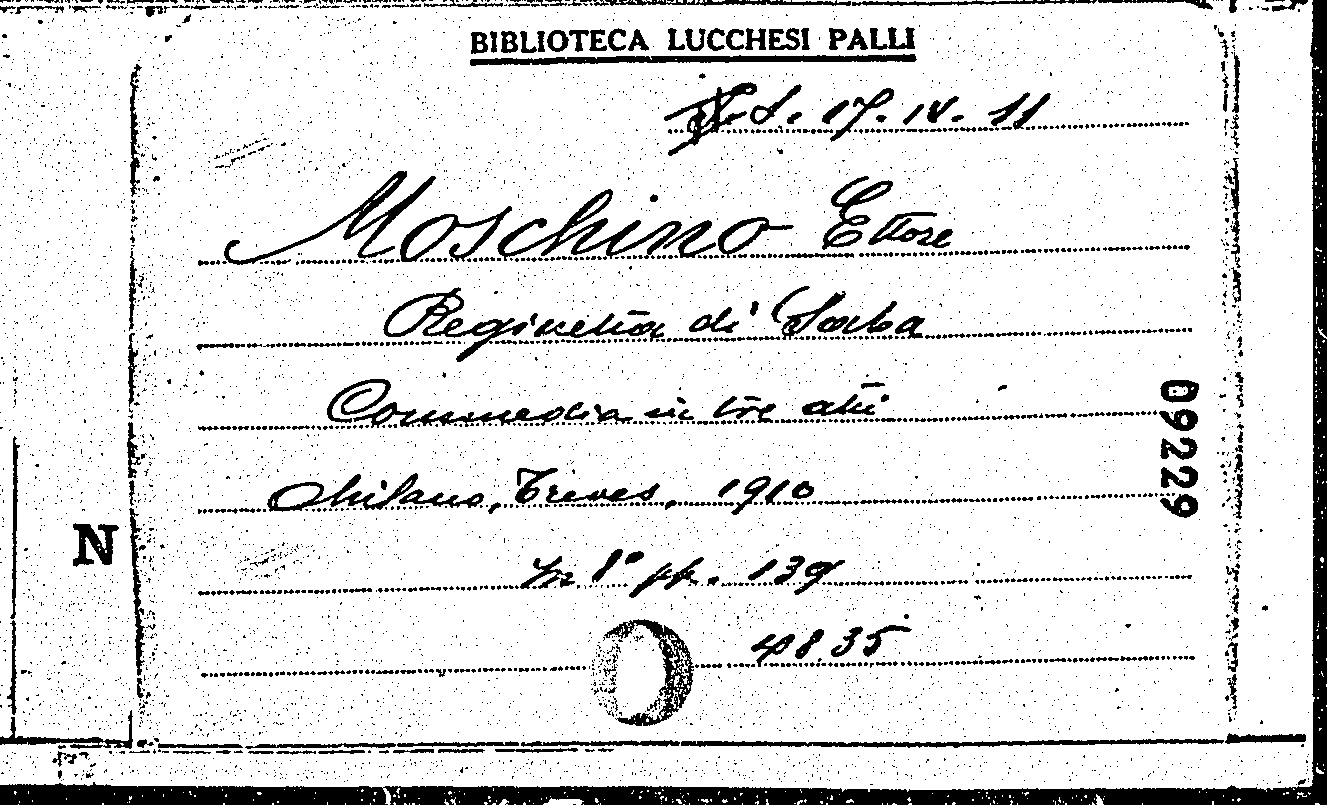 BIBLIOTECA LUCCHESI PALLI
17. IV. 11
Moschino Ettore
Reginetta di Saba
Commedia in tre atti
Milano, Treves, 1910
In 8° pp. 139
4835
09229
N